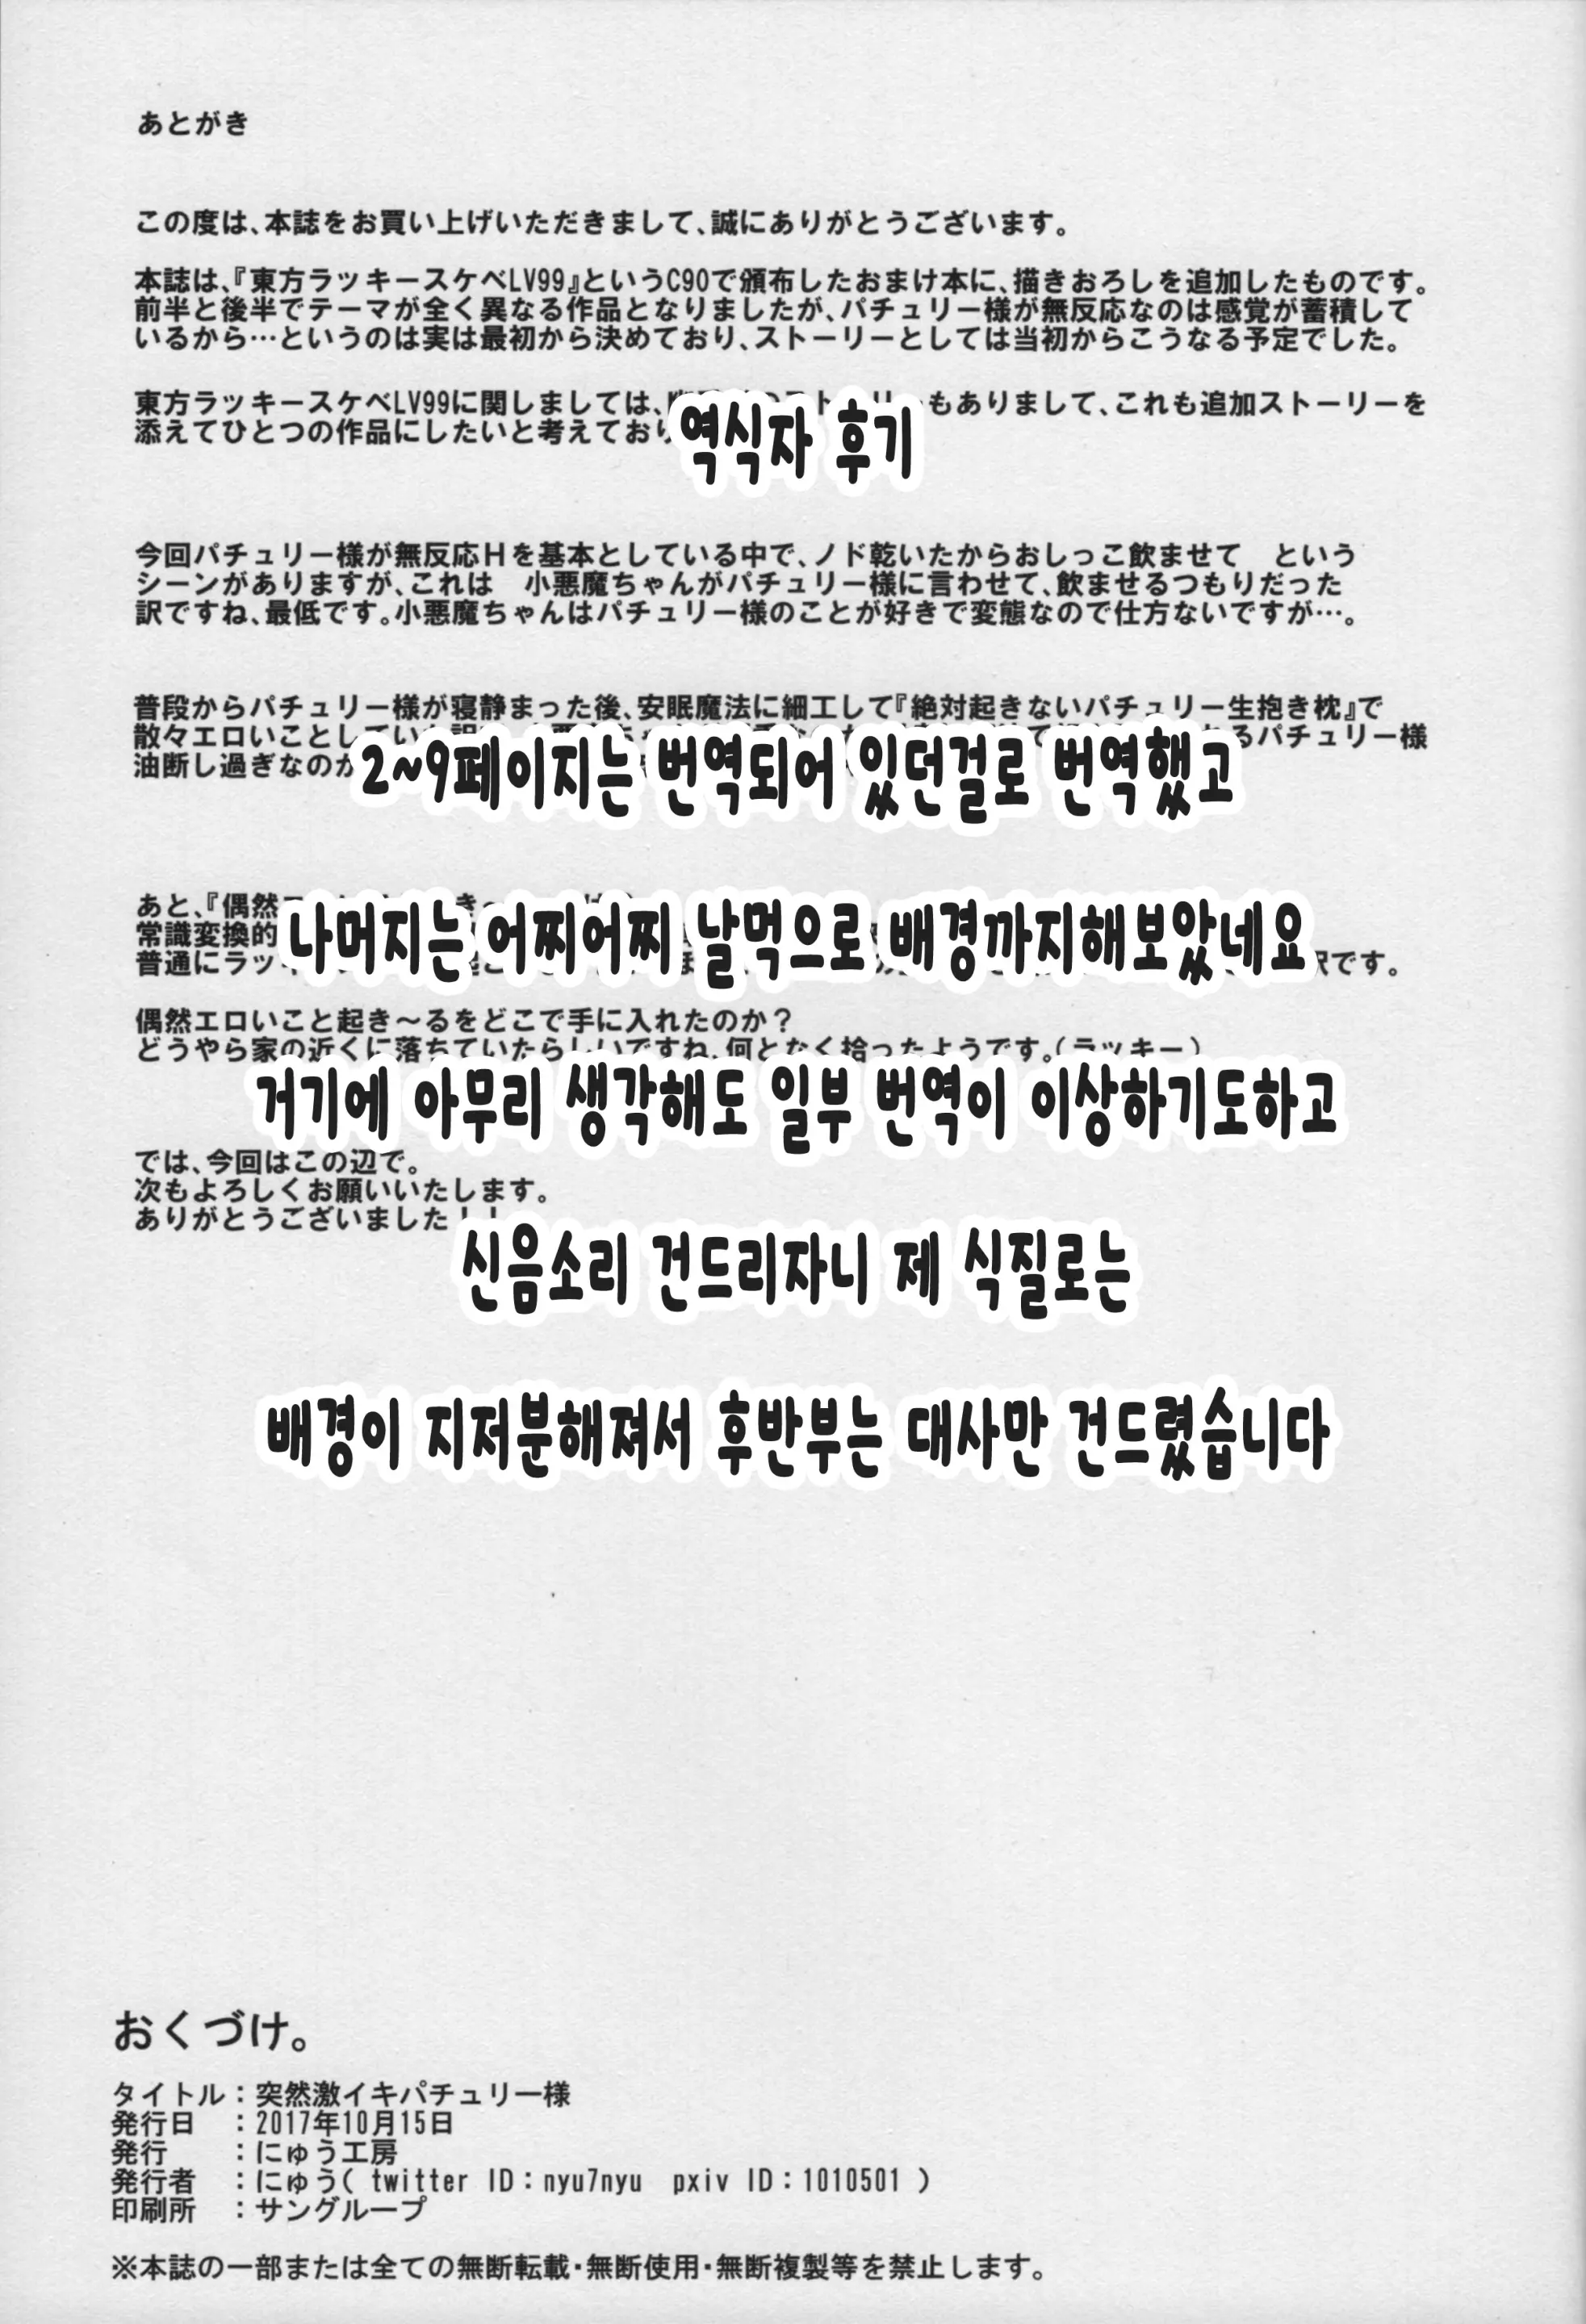 あとがき
この度は、本誌をお買い上げいただきまして、誠にありがとうございます。
本誌は、『東方ラッキースケベLV99』というC90で頒布したおまけ本に、描きおろしを追加したものです。
前半と後半でテーマが全く異なる作品となりましたが、パチュリー様が無反応なのは感覚が蓄積して
いるから…というのは実は最初から決めており、ストーリーとしては当初からこうなる予定でした。
東方ラッキースケベLV99に関しましては、 もありまして、これも追加ストーリーを
添えてひとつの作品にしたいと考えており
역식자 후기
今回パチュリー様が無反応Hを基本としている中で、ノド乾いたからおしっこ飲ませて という
シーンがありますが、これは 小悪魔ちゃんがパチュリー様に言わせて、飲ませるつもりだった
訳ですね、最低です。小悪魔ちゃんはパチュリー様のことが好きで変態なので仕方ないですが…。
普段からパチュリー様が寝静まった後、安眠魔法に細工して『絶対起きないパチュリー生抱き枕』で
散々エロいことし るパチュリー様
油断し過ぎなのか
2~9페이지는 번역되어 있던걸로 번역했고
あと、『偶然
常識変換的
나머지는 어찌어찌 날먹으로 배경까지해보았네요
普通にラッキ 訳です。
偶然エロいこと起き～るをどこで手に入れたのか？
どうやら家の近くに落ちていたらしいですね、何となく拾ったようです。(ラッキー)
거기에 아무리 생각해도 일부 번역이 이상하기도하고
では、今回はこの辺で。
次もよろしくお願いいたします。
ありがとうございました！！
신음소리 건드리자니 제 식질로는
배경이 지저분해져서 후반부는 대사만 건드렸습니다
おくづけ。
タイトル：突然激イキパチュリー様
発行日 ：2017年10月15日
発行 ：にゅう工房
発行者 ：にゅう( twitter ID：nyu7nyu pxiv ID：1010501 )
印刷所 ：サングループ
※本誌の一部または全ての無断転載・無断使用・無断複製等を禁止します。